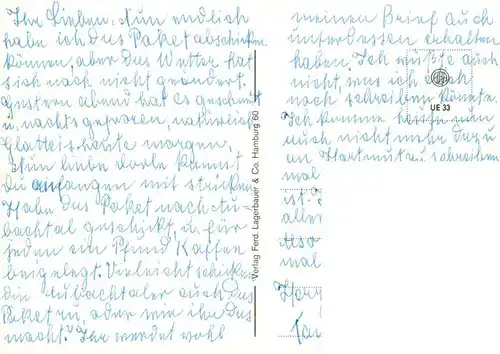 Ihr Lieben. Nun endlich
habe ich das Paket abschicken
können, aber das Wetter hat
sich noch nicht geändert.
Gestern abend hat es geschneit
u. nachts gefroren, natürlich
Glatteis heute morgen.
Nun liebe Dorle kannst
Du anfangen mit stricken.
Habe das Paket nach
geschickt, u. für
jeden ein Pfund Kaffee
beigelegt. Vielleicht schicken
die auch das
Paket zu, oder wie ihr das
macht. Ihr werdet wohl
meinen Brief auch
unterdessen erhalten
haben. Ich wüßte auch
nicht, was ich Euch
noch schreiben könnte.
Ich komme
auch nicht mehr dazu
an Hartmut zu schreiben
mal
ist.
aller
Also
mal
Verlag Ferd. Lagerbauer & Co. Hamburg 60
UE 33